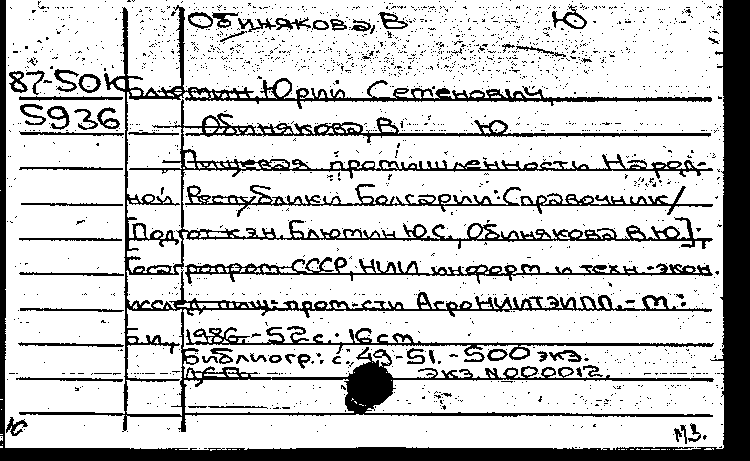 Обинякова, В Ю.
87-50К Блютин, Юрий Семенович,
5936 Обинякова, В Ю
Пищевая промышленности Народ-
ной Республики Болгарии: Справочник/
[Подгот. к.э.н. Блютин Ю.С., Обинякова В.Ю];
Госагропром СССР, НИИ информ. и техн.-экон.
исслед. пищ. пром-сти АгроНИИТЭИПП. - М.:
Б.и., 1986. - 52 с.; 16 см.
Библиогр.: с. 49-51. - 500 экз.
ДСП. Экз. N000012.
М.З.